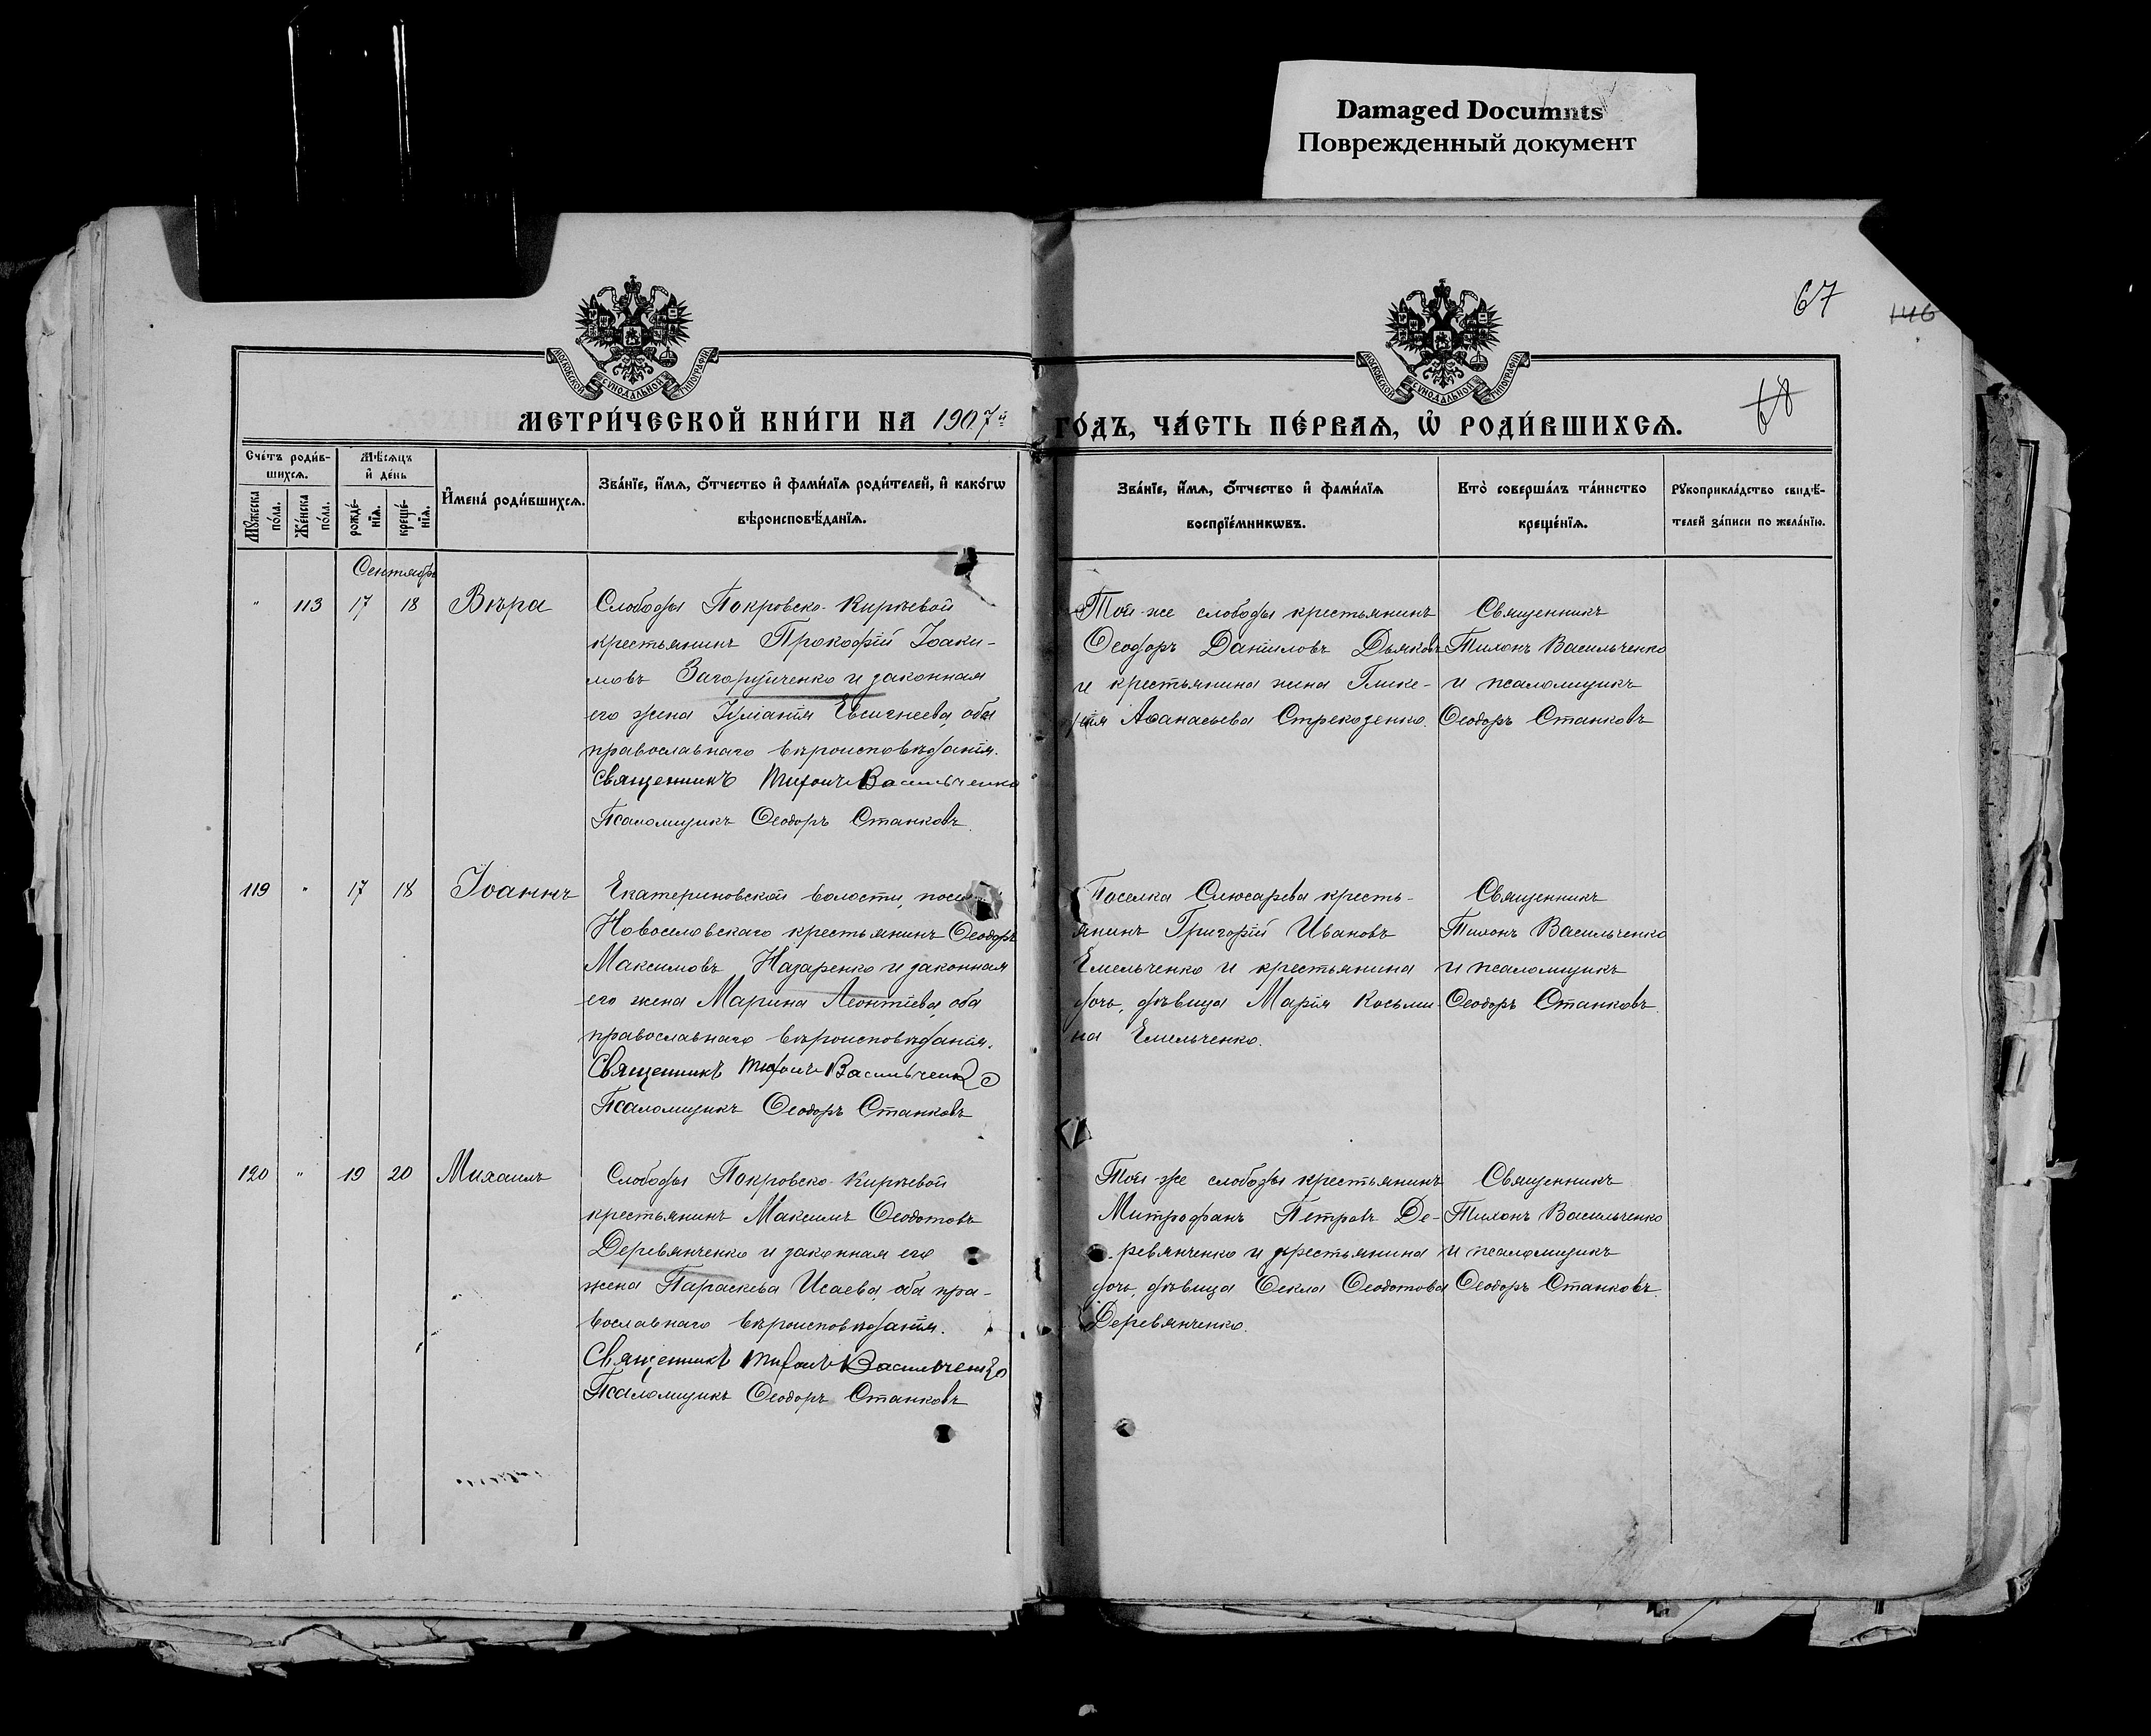 Damaged Documnts
Поврежденный документ
67
146
68
МОСКОВСКОЙ СѴНОДАЛЬНОЙ ТИПОГРАФІИ
МОСКОВСКОЙ СѴНОДАЛЬНОЙ ТИПОГРАФІИ
МЕТРИ́ЧЕСКОЙ КНИ́ГИ НА 1907й
ГО́ДЪ, ЧА́СТЬ ПЕ́РВАѦ, Ѡ҆ РОДИ́ВШИХСѦ.
Сче́тъ роди́в-
шихсѧ.
Мꙋ́жеска по́ла.
Же́нска по́ла.
Мѣ́сѧцъ
и҆ де́нь
рожде́-
нїѧ.
креще́-
нїѧ.
И҆мена̀ роди́вшихсѧ.
Зва́нїе, и҆́мѧ, ѻ҆́тчество и҆ фами́лїѧ роди́телей, и҆ како́гѡ
вѣроисповѣ́данїѧ.
Зва́нїе, и҆́мѧ, ѻ҆́тчество и҆ фами́лїѧ
воспрїе́мникѡвъ.
Кто̀ соверша́лъ та́инство
креще́нїѧ.
Рꙋкоприкла́дство свидѣ́-
телей за́писи по жела́нїю.
Сентябрь
" 113 17 18 Вѣра
Слободы Покровско-Кирѣевой
крестьянинъ Прокофій Іоаки-
мовъ Загоруйченко и законная
его жена Іуліанія Евсигнеева, оба
православнаго вѣроисповѣданія.
Священникъ Тихонъ Васильченко
Псаломщикъ Ѳеодоръ Станковъ
Той-же слободы крестьянинъ
Ѳеодоръ Даніиловъ Дьяковъ
и крестьянина жена Глике-
рія Аѳанасьева Стрекозенко.
Священникъ
Тихонъ Васильченко
и псаломщикъ
Ѳеодоръ Станковъ
119 " 17 18 Іоаннъ
Екатериновской волости, посе
Новоселовскаго крестьянинъ Ѳеодоръ
Максимовъ Назаренко и законная
его жена Марина Леонтіева, оба
православнаго вѣроисповѣданія.
Священникъ Тихонъ Васильченко
Псаломщикъ Ѳеодоръ Станковъ
Поселка Слюсарева кресть-
янинъ Григорій Ивановъ
Емельченко и крестьянина
дочь, дѣвица Марія Косьми-
на Емельченко.
Священникъ
Тихонъ Васильченко
и псаломщикъ
Ѳеодоръ Станковъ.
120 " 19 20 Михаилъ
Слободы Покровско-Кирѣевой
крестьянинъ Максимъ Ѳеодотовъ
Деревянченко и законная его
жена Параскева Исаева, оба пра-
вославнаго вѣроисповѣданія.
Священникъ Тихонъ Васильченко
Псаломщикъ Ѳеодоръ Станковъ
Той-же слободы крестьянинъ
Митрофанъ Петровъ Де-
ревянченко и крестьянина
дочь, дѣвица Ѳекла Ѳеодотова
Деревянченко.
Священникъ
Тихонъ Васильченко
и псаломщикъ
Ѳеодоръ Станковъ.